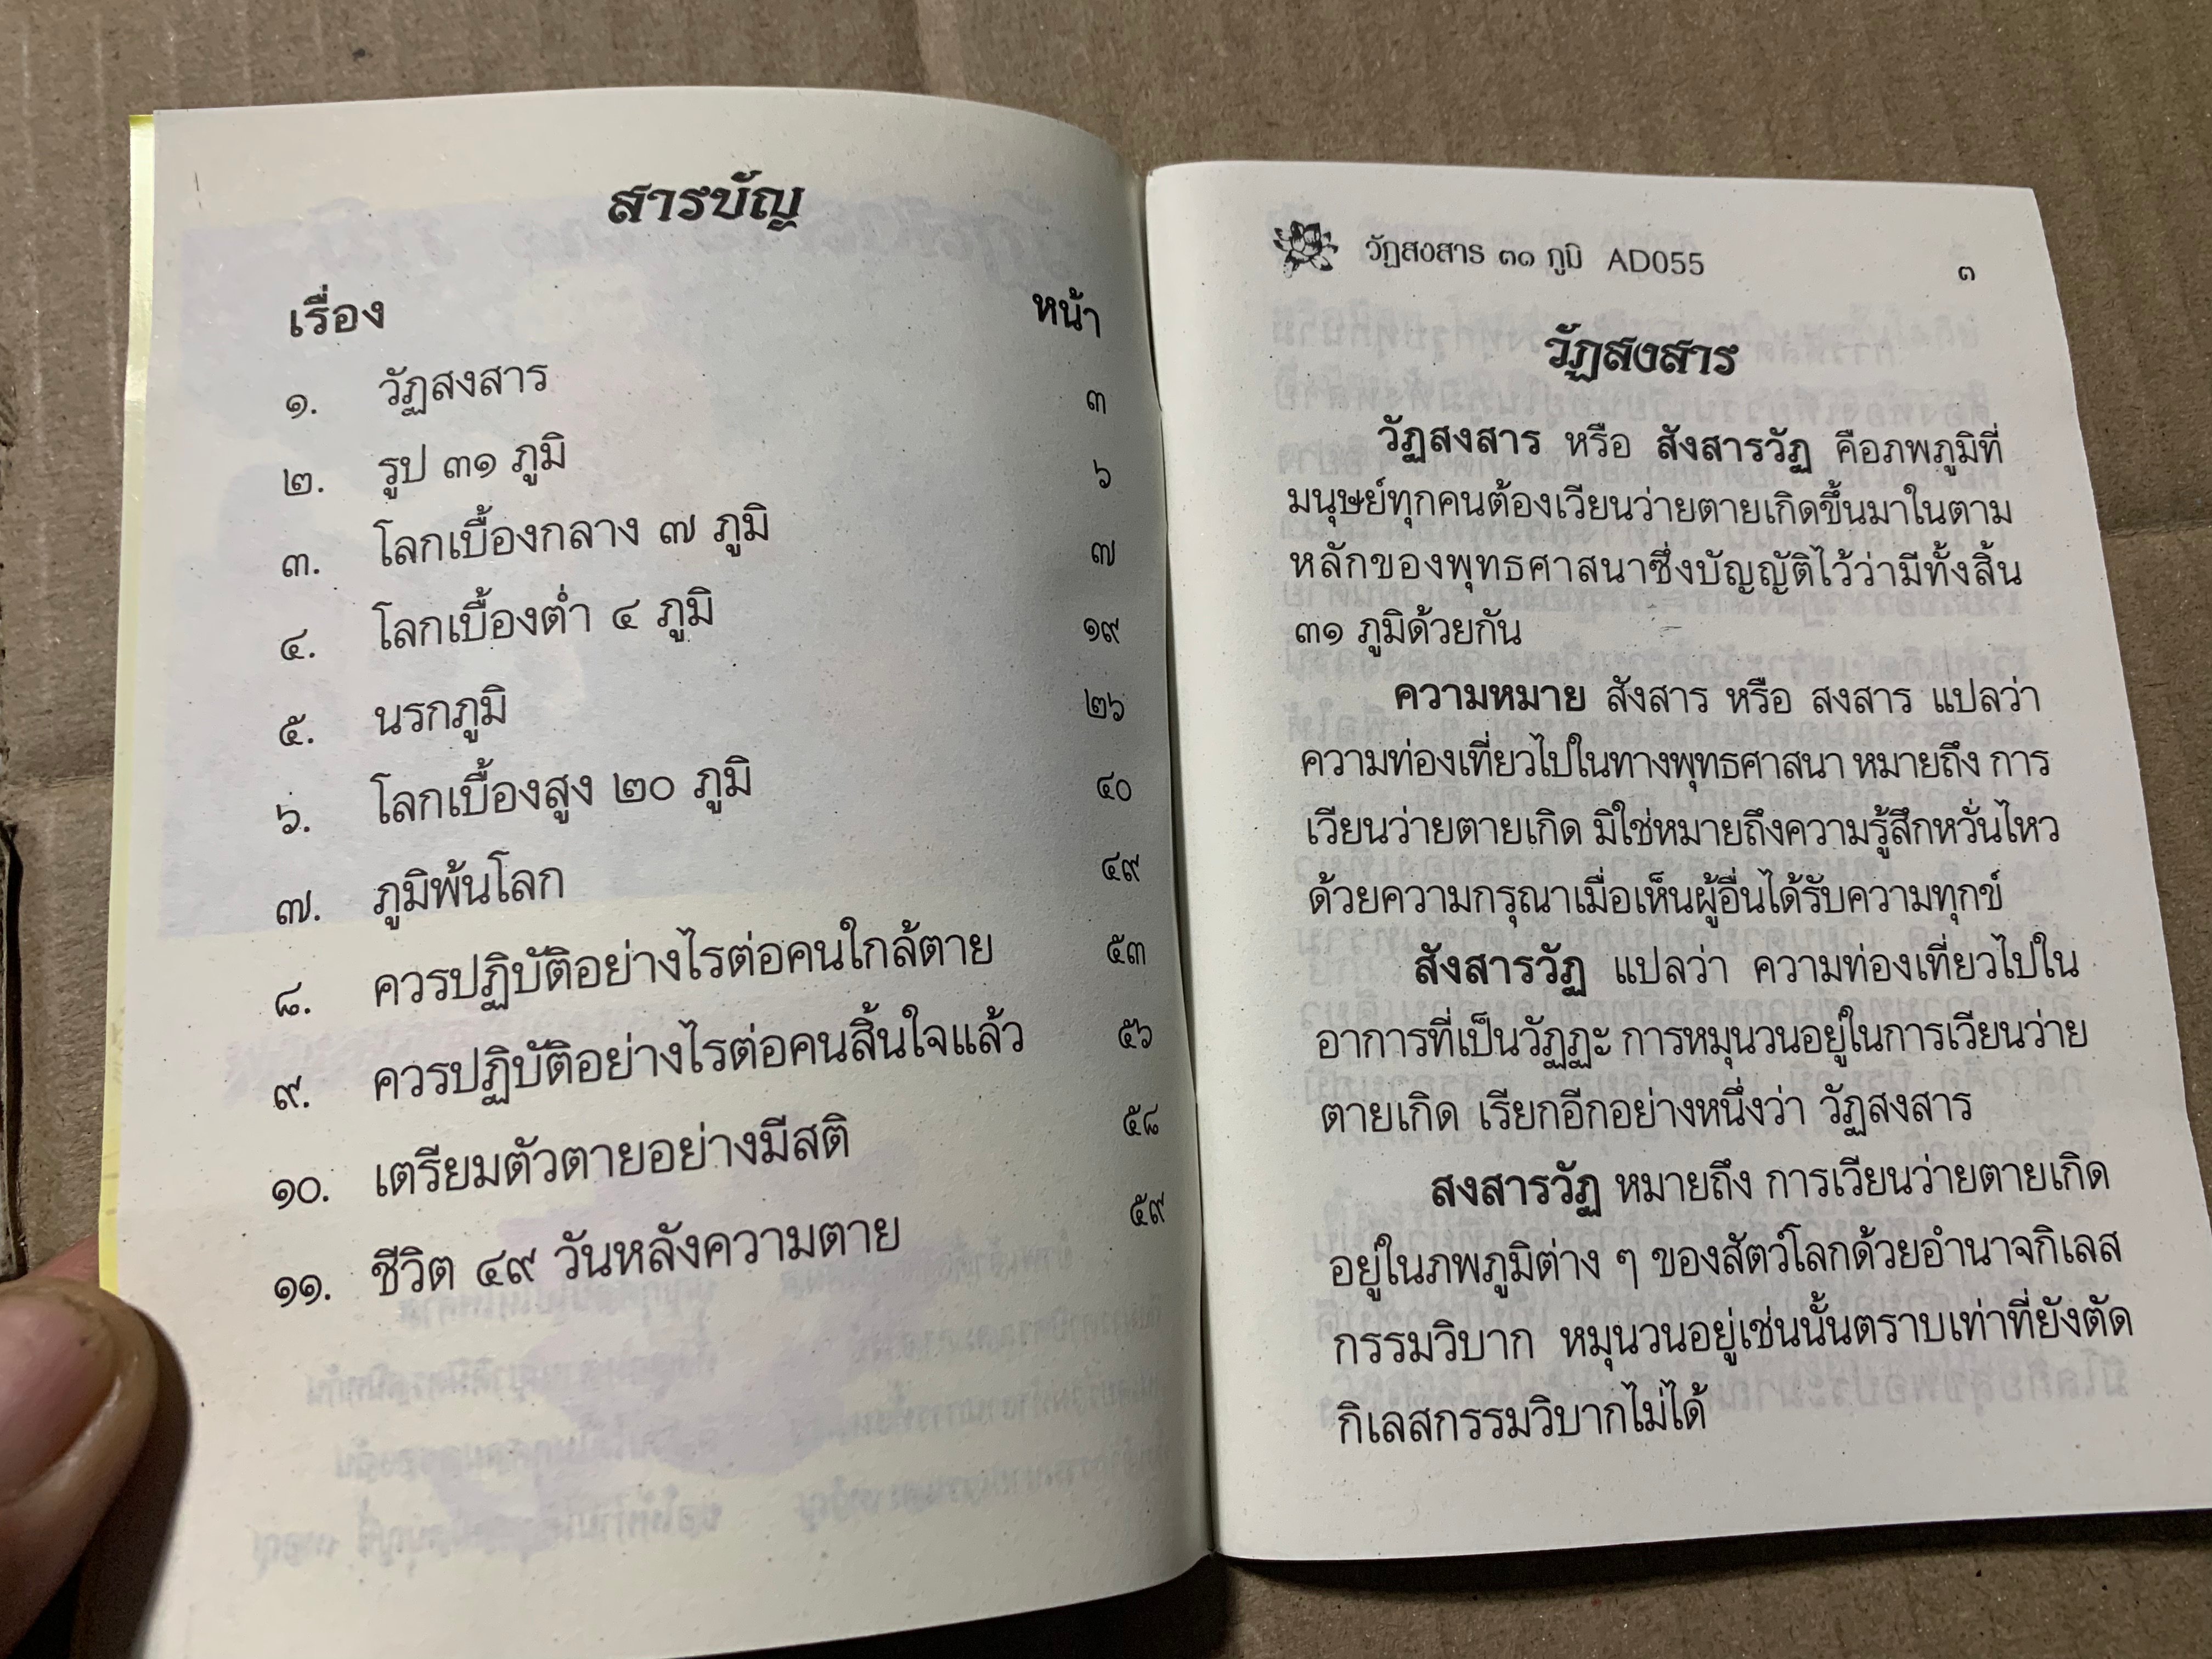 สารบัญ
เรื่อง หน้า
๑. วัฏสงสาร ๓
๒. รูป ๓๑ ภูมิ ๖
๓. โลกเบื้องกลาง ๗ ภูมิ ๗
๔. โลกเบื้องต่ำ ๔ ภูมิ ๑๙
๕. นรกภูมิ ๒๖
๖. โลกเบื้องสูง ๒๐ ภูมิ ๔๐
๗. ภูมิพ้นโลก ๔๙
๘. ควรปฏิบัติอย่างไรต่อคนใกล้ตาย ๕๓
๙. ควรปฏิบัติอย่างไรต่อคนสิ้นใจแล้ว ๕๖
๑๐. เตรียมตัวตายอย่างมีสติ ๕๘
๑๑. ชีวิต ๔๙ วันหลังความตาย ๕๙
วัฏสงสาร ๓๑ ภูมิ AD055 ๓
วัฏสงสาร
วัฏสงสาร หรือ สังสารวัฏ คือภพภูมิที่
มนุษย์ทุกคนต้องเวียนว่ายตายเกิดขึ้นมาในตาม
หลักของพุทธศาสนาซึ่งบัญญัติไว้ว่ามีทั้งสิ้น
๓๑ ภูมิด้วยกัน
ความหมาย สังสาร หรือ สงสาร แปลว่า
ความท่องเที่ยวไปในทางพุทธศาสนา หมายถึง การ
เวียนว่ายตายเกิด มิใช่หมายถึงความรู้สึกหวั่นไหว
ด้วยความกรุณาเมื่อเห็นผู้อื่นได้รับความทุกข์
สังสารวัฏ แปลว่า ความท่องเที่ยวไปใน
อาการที่เป็นวัฏฏะ การหมุนวนอยู่ในการเวียนว่าย
ตายเกิด เรียกอีกอย่างหนึ่งว่า วัฏสงสาร
สงสารวัฏ หมายถึง การเวียนว่ายตายเกิด
อยู่ในภพภูมิต่าง ๆ ของสัตว์โลกด้วยอำนาจกิเลส
กรรมวิบาก หมุนวนอยู่เช่นนั้นตราบเท่าที่ยังตัด
กิเลสกรรมวิบากไม่ได้